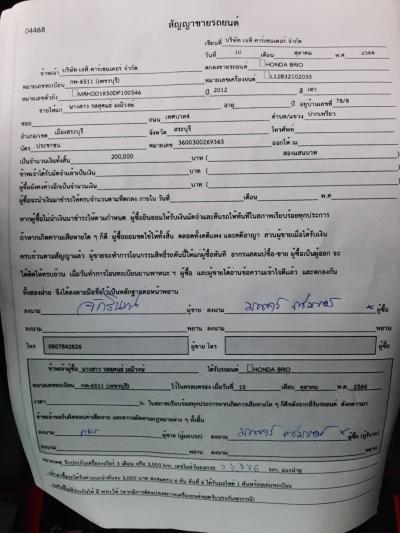 04468
สัญญาขายรถยนต์
เขียนที่ บริษัท เจที คาร์เซนเตอร์ จำกัด
วันที่ 10 เดือน ตุลาคม พ.ศ. 2566
ข้าพเจ้า บริษัท เจที คาร์เซนเตอร์ จำกัด ตกลงขายรถยนต์ HONDA BRIO
หมายเลขทะเบียน กพ-6511 (เพชรบุรี) หมายเลขเครื่องยนต์ L12B32102035
หมายเลขตัวถัง MRHDD1850DP100546 ปี 2012 สี เทา
ขายให้แก่ นางสาว รสสุคนธ์ มณีวงษ์ อายุ ปี อยู่บ้านเลขที่ 78/8
ซอย ถนน เทศบาล4 ตำบล/แขวง ปากเพรียว
อำเภอ/เขต เมืองสระบุรี จังหวัด สระบุรี โทรศัพท์
บัตร ประชาชน หมายเลข 3600300269365 ออกให้ ณ
เป็นจำนวนเงินทั้งสิ้น 200,000 บาท ( สองแสนบาท
ข้าพเจ้าได้รับมัดจำแล้วเป็นเงิน บาท (
ผู้ซื้อยังคงค้างอีกเป็นจำนวนเงิน บาท (
ผู้ซื้อจะนำเงินมาชำระให้ครบจำนวนตามที่ตกลง ภายใน วันที่ เดือน พ.ศ.
หากผู้ซื้อไม่นำเงินมาชำระให้ตามกำหนด ผู้ซื้อยินยอมให้ริบเงินมัดจำและคืนรถให้ทันทีในสภาพเรียบร้อยทุกประการ
ถ้าหากเกิดความเสียหายใด ๆ ก็ดี ผู้ซื้อยอมชดใช้ให้ทั้งสิ้น ตลอดทั้งคดีแพ่ง และคดีอาญา ส่วนผู้ขายเมื่อได้รับเงิน
ครบถ้วนตามสัญญาแล้ว ผู้ขายจะทำการโอนกรรมสิทธิ์รถคันนี้ให้แก่ผู้ซื้อทันที อากรแสตมป์ซื้อ-ขาย ผู้ซื้อเป็นผู้ออก จะ
ได้คิดให้ครบถ้วน เมื่อวันทำการโอนทะเบียนยานพาหนะ ฯ ผู้ซื้อ และผู้ขายได้อ่านข้อความเข้าใจดีแล้ว และตกลงกัน
ทั้งสองฝ่าย จึงได้ลงลายมือชื่อไว้เป็นหลักฐานต่อหน้าพยาน
ลงนาม ผู้ขาย ลงนาม ผู้ซื้อ
ลงนาม พยาน ลงนาม พยาน
โทร 0807842626 ผู้ขาย โทร ผู้ซื้อ
ข้าพเจ้าผู้ซื้อ นางสาว รสสุคนธ์ มณีวงษ์ ได้รับรถยนต์ HONDA BRIO
หมายเลขทะเบียน กพ-6511 (เพชรบุรี) ไว้ในครอบครอง เมื่อวันที่ 10 เดือน ตุลาคม พ.ศ. 2566
เวลา น. ในสภาพเรียบร้อยทุกประการหากเกิดการเสียหายใด ๆ ก็ดีหลังจากที่รับรถยนต์ ดังกล่าวมา
ข้าพเจ้าขอรับผิดชอบค่าเสียหาย และความผิดตามกฎหมายต่าง ๆ ทั้งสิ้น
ลงนาม ผู้ขาย (ผู้มอบรถ) ลงนาม ผู้ซื้อ (ผู้รับรถ)
ลงนาม พยาน ลงนาม พยาน
หมายเหตุ รับประกันเครื่องเกียร์ 3 เดือน หรือ 3,000 km. เลขไมล์วันออกรถ km.